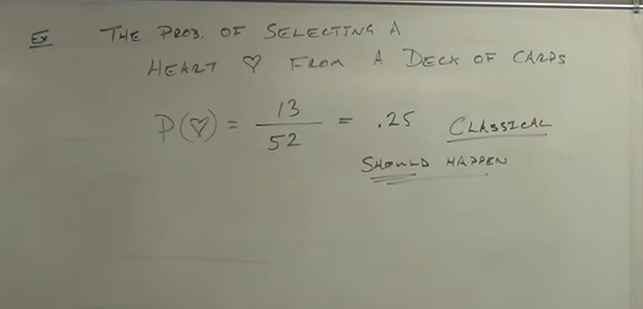 Ex THE PROB. OF SELECTING A
HEART ♡ FROM A DECK OF CARDS
P(♡) = 13/52 = .25 CLASSICAL
SHOULD HAPPEN